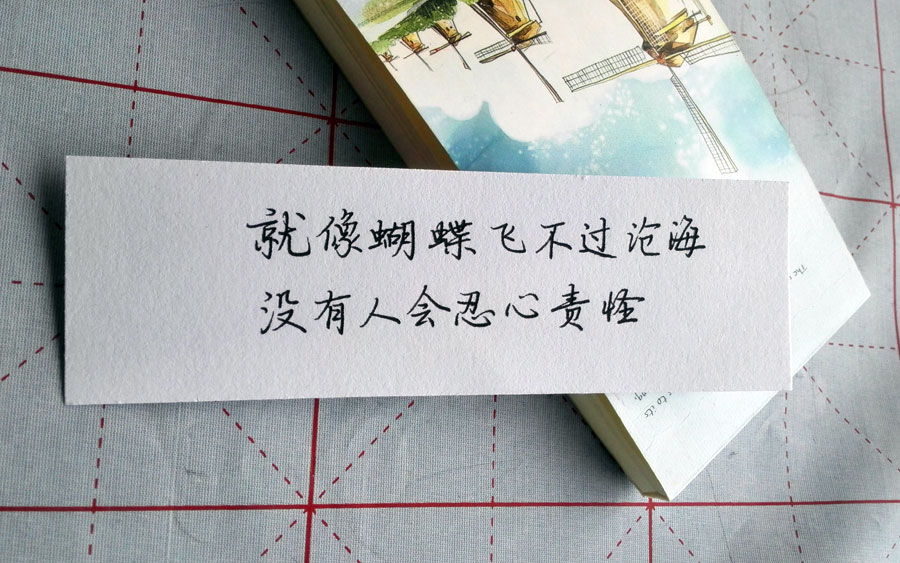 就像蝴蝶飞不过沧海
没有人会忍心责怪
to its